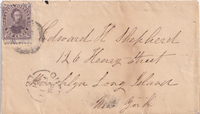 Edward H Shepherd
126 Henry Street
Brooklyn Long Island
New York